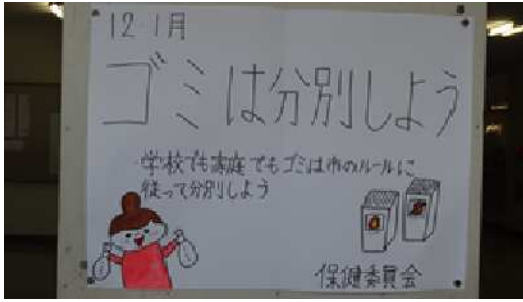 12・1月
ゴミは分別しよう
・学校でも家庭でもゴミは市のルールに
従って分別しよう
保健委員会